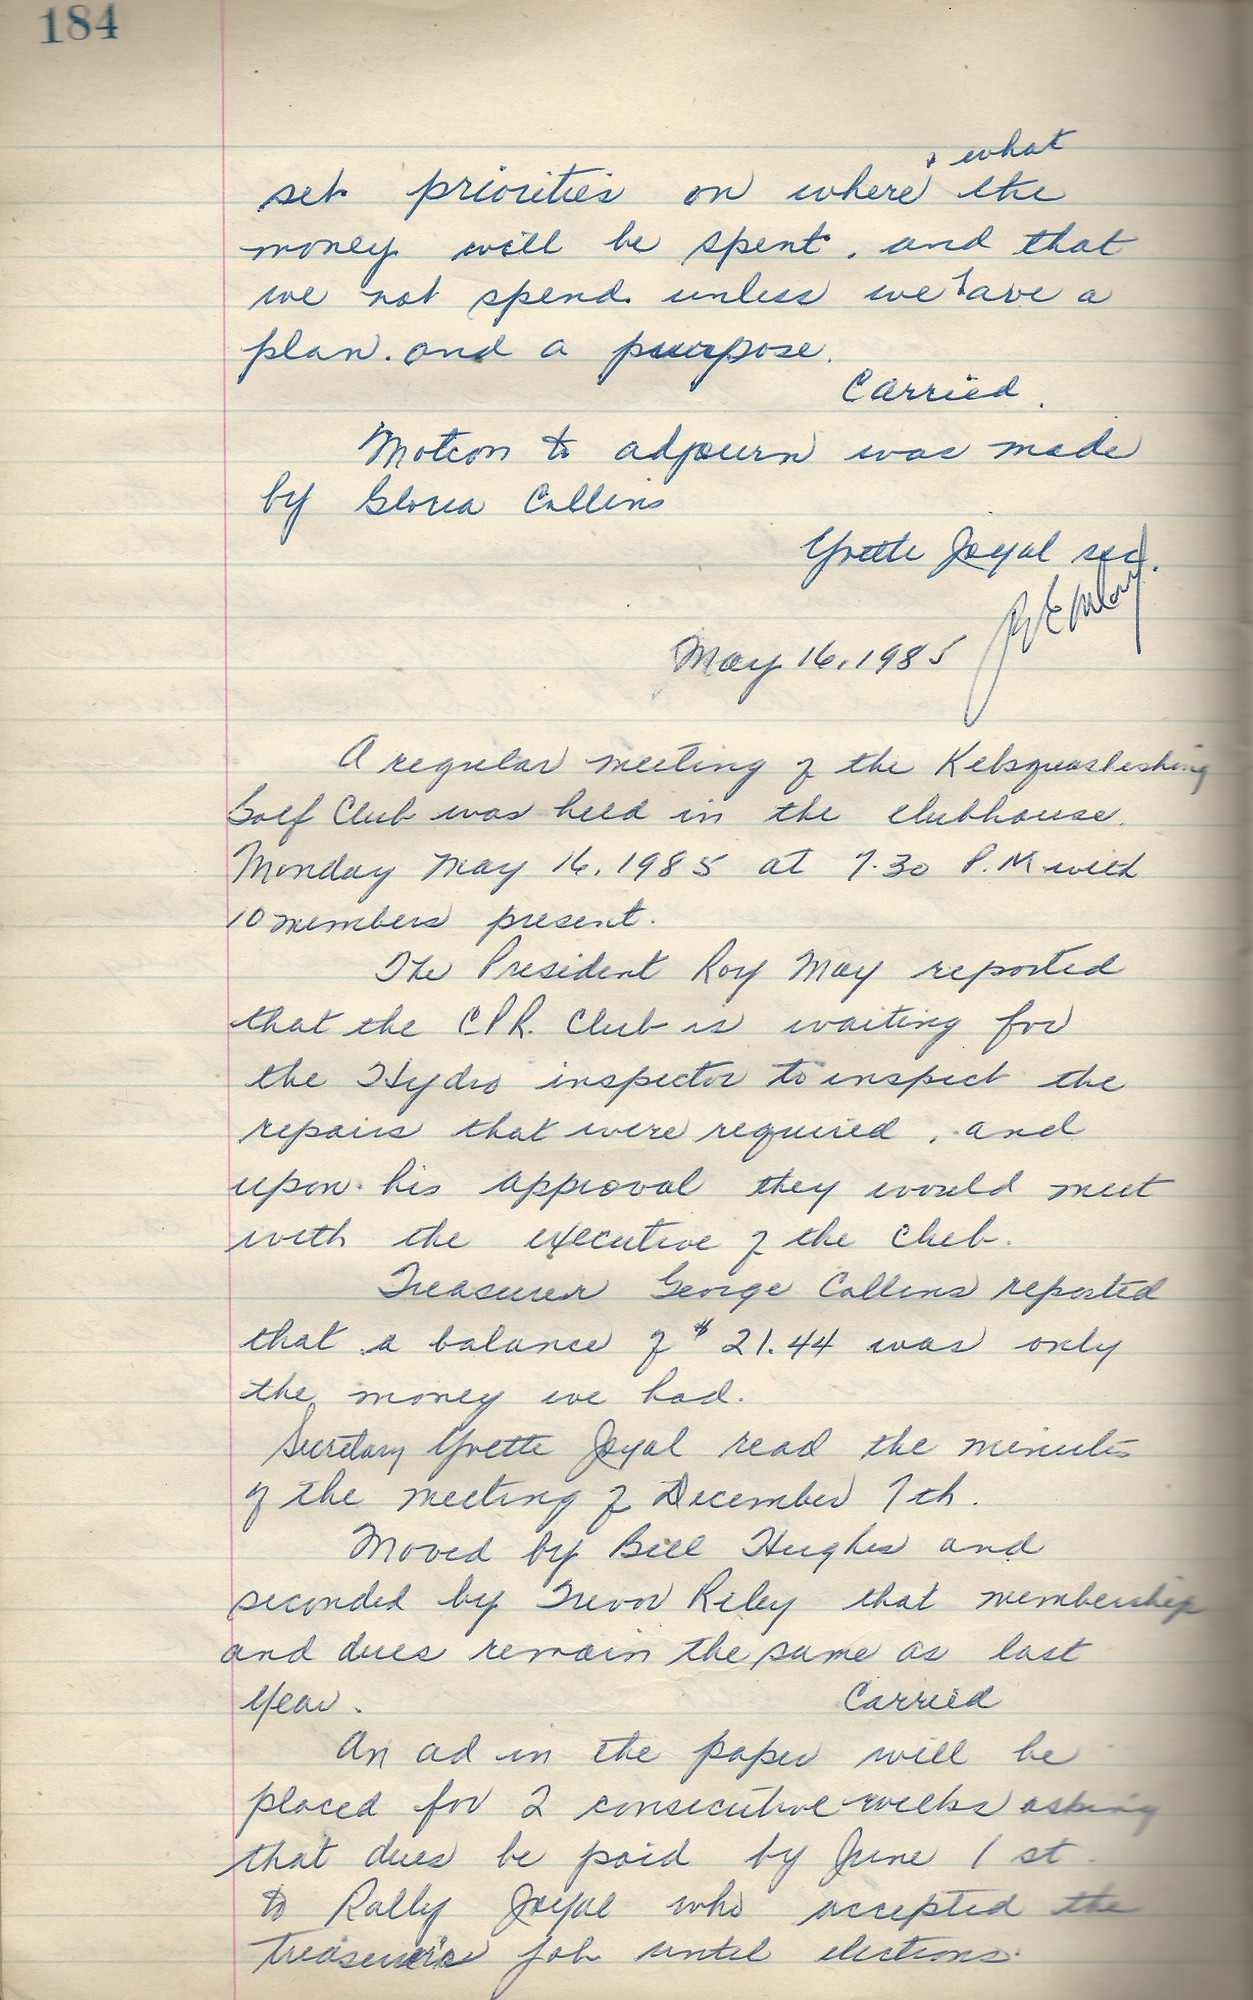 184
& what
set priorities on where the
money will be spent. and that
we not spend unless we have a
plan. and a purpose.
Carried.
Motion to adjourn was made
by Gloria Collins
Yvette Joyal sec.
R E May
May 16, 1985
A regular meeting of the Kebsquasheshing
Golf Club was held in the clubhouse.
Monday May 16, 1985 at 7.30 P.M with
10 members present.
The President Roy May reported
that the CPR. Club is waiting for
the Hydro inspector to inspect the
repairs that were required, and
upon his approval they would meet
with the executive of the Club.
Treasurer George Collins reported
that a balance of $21.44 was only
the money we had.
Secretary Yvette Joyal read the minutes
of the meeting of December 7th.
Moved by Bill Hughes and
seconded by Trevor Riley that membership
and dues remain the same as last
year.
Carried
An ad in the paper will be
placed for 2 consecutive weeks asking
that dues be paid by June 1st
to Rolly Joyal who accepted the
Treasurer's job until elections.